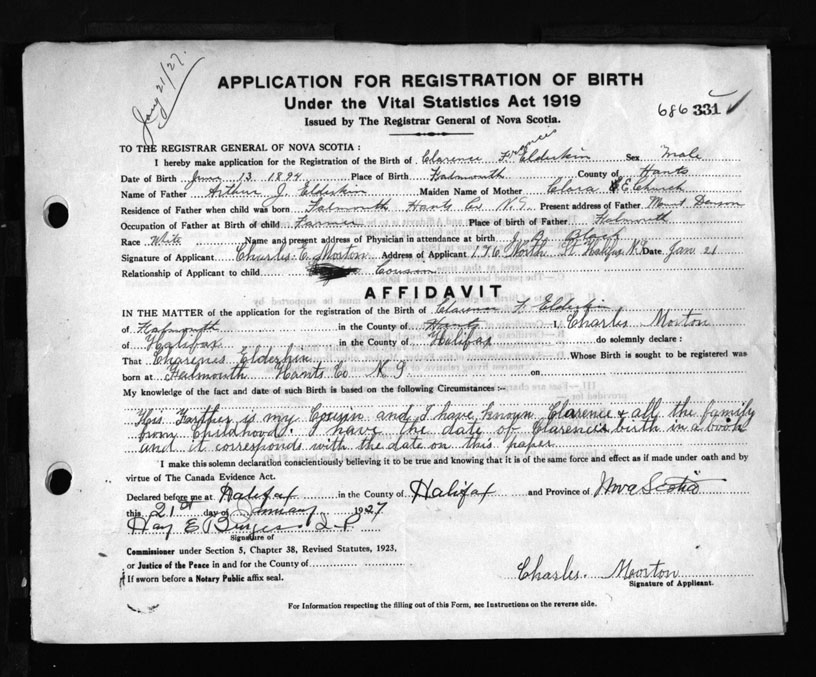 Jany 21/27.
APPLICATION FOR REGISTRATION OF BIRTH
Under the Vital Statistics Act 1919
Issued by The Registrar General of Nova Scotia.
686 331
TO THE REGISTRAR GENERAL OF NOVA SCOTIA :
I hereby make application for the Registration of the Birth of Clarence Francis Elderkin Sex Male
Date of Birth June 13 1894 Place of Birth Falmouth County of Hants
Name of Father Arthur J. Elderkin Maiden Name of Mother Clara E Church
Residence of Father when child was born Falmouth Hants Co N.S. Present address of Father Mount Denson
Occupation of Father at Birth of child Farmer Place of birth of Father Falmouth
Race White Name and present address of Physician in attendance at birth J. B. Black
Signature of Applicant Charles E. Morton Address of Applicant 176 North St Halifax N.S. Date Jan. 21
Relationship of Applicant to child Cousin
AFFIDAVIT
IN THE MATTER of the application for the registration of the Birth of Clarence F Elderkin
of Falmouth in the County of Hants I, Charles Morton
of Halifax in the County of Halifax do solemnly declare :
That Elderkin Whose Birth is sought to be registered was
born at Falmouth Hants Co N S. on
My knowledge of the fact and date of such Birth is based on the following Circumstances :-
His Farther is my Cousin and I have known Clarence & all the family
from Childhood. I have the date of Clarence's birth in a book
and it corresponds with the date on this paper
I make this solemn declaration conscientiously believing it to be true and knowing that it is of the same force and effect as if made under oath and by
virtue of The Canada Evidence Act.
Declared before me at Halifax in the County of Halifax and Province of Nova Scotia
this 21st day of January 1927
E Burges J.P.
Signature of
Commissioner under Section 5, Chapter 38, Revised Statutes, 1923,
or Justice of the Peace in and for the County of
If sworn before a Notary Public affix seal.
Charles. Morton
Signature of Applicant.
For Information respecting the filling out of this Form, see Instructions on the reverse side.